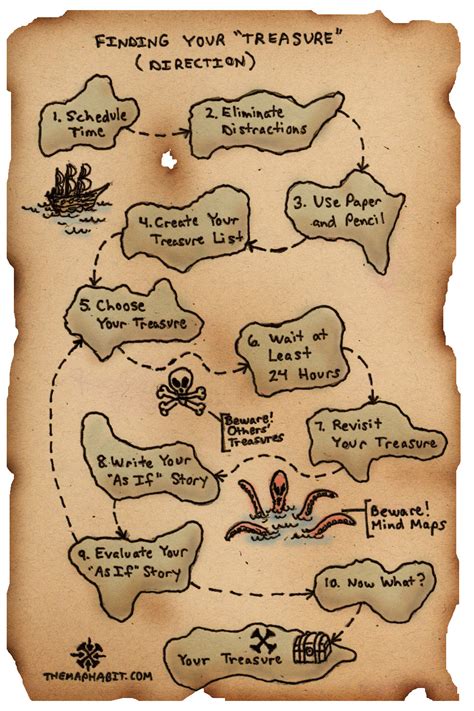 FINDING YOUR "TREASURE"
(DIRECTION)
1. Schedule
Time
2. Eliminate
Distractions
3. Use Paper
and Pencil
4. Create Your
Treasure List
5. Choose
Your Treasure
6. Wait at
Least
24 Hours
Beware!
Others'
Treasures
7. Revisit
Your Treasure
8. Write Your
"As If" Story
Beware!
Mind Maps
9. Evaluate Your
"As If" Story
10. Now What?
Your Treasure
THEMAPHABIT.COM